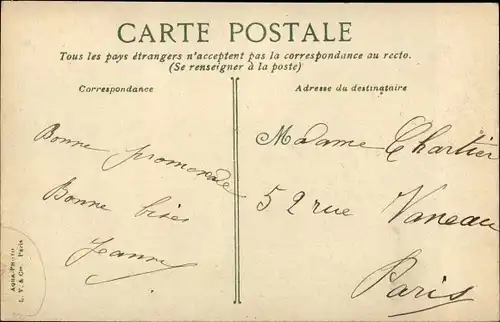 CARTE POSTALE
Tous les pays étrangers n'acceptent pas la correspondance au recto.
(Se renseigner à la poste)
Correspondance
Adresse du destinataire
Bonne promenade
Bonne bises
Jeanne
Madame Chartier
52 rue Vaneau
Paris
AQUA-PHOTO
L. V. & Cie Paris